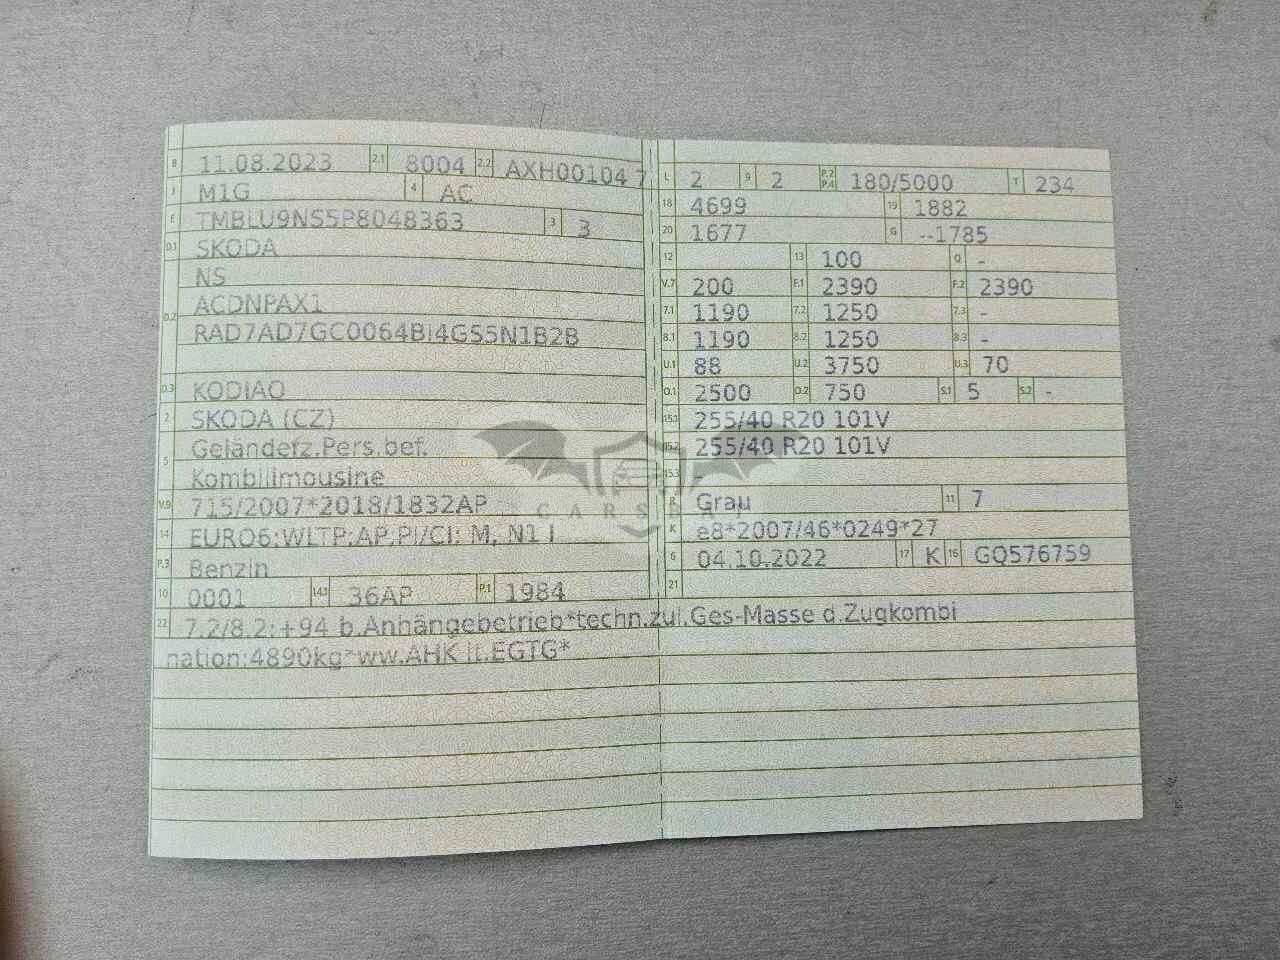 B 11.08.2023 2.1 8004 2.2 AXH00104 7
J M1G 4 AC
E TMBLU9NS5P8048363 3 3
D.1 SKODA
NS
D.2 ACDNPAX1
RAD7AD7GC0064BI4GS5N1B2B
D.3 KODIAQ
2 SKODA (CZ)
5 Geländefz.Pers.bef.
Kombilimousine
V.9 715/2007*2018/1832AP
14 EURO6;WLTP;AP;PI/CI; M, N1 I
P.3 Benzin
10 0001 14.1 36AP P.1 1984
L 2 9 2 P.2 P.4 180/5000 T 234
18 4699 19 1882
20 1677 G --1785
12 13 100 Q -
V.7 200 F.1 2390 F.2 2390
7.1 1190 7.2 1250 7.3 -
8.1 1190 8.2 1250 8.3 -
U.1 88 U.2 3750 U.3 70
O.1 2500 O.2 750 S.1 5 S.2 -
15.1 255/40 R20 101V
15.2 255/40 R20 101V
15.3
R Grau 11 7
K e8*2007/46*0249*27
6 04.10.2022 17 K 16 GQ576759
21
22 7.2/8.2:+94 b.Anhängebetrieb*techn.zul.Ges-Masse d.Zugkombi
nation:4890kg*ww.AHK lt.EGTG*